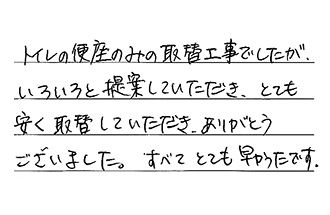 トイレの便座のみの取替工事でしたが、
いろいろと提案していただき、とても
安く取替していただき、ありがとう
ございました。すべてとても早かったです。